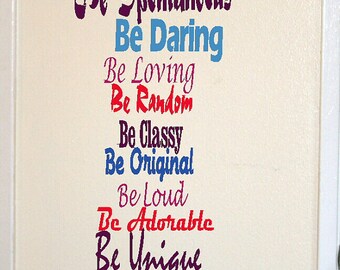 Be Spontaneous
Be Daring
Be Loving
Be Random
Be Classy
Be Original
Be Loud
Be Adorable
Be Unique